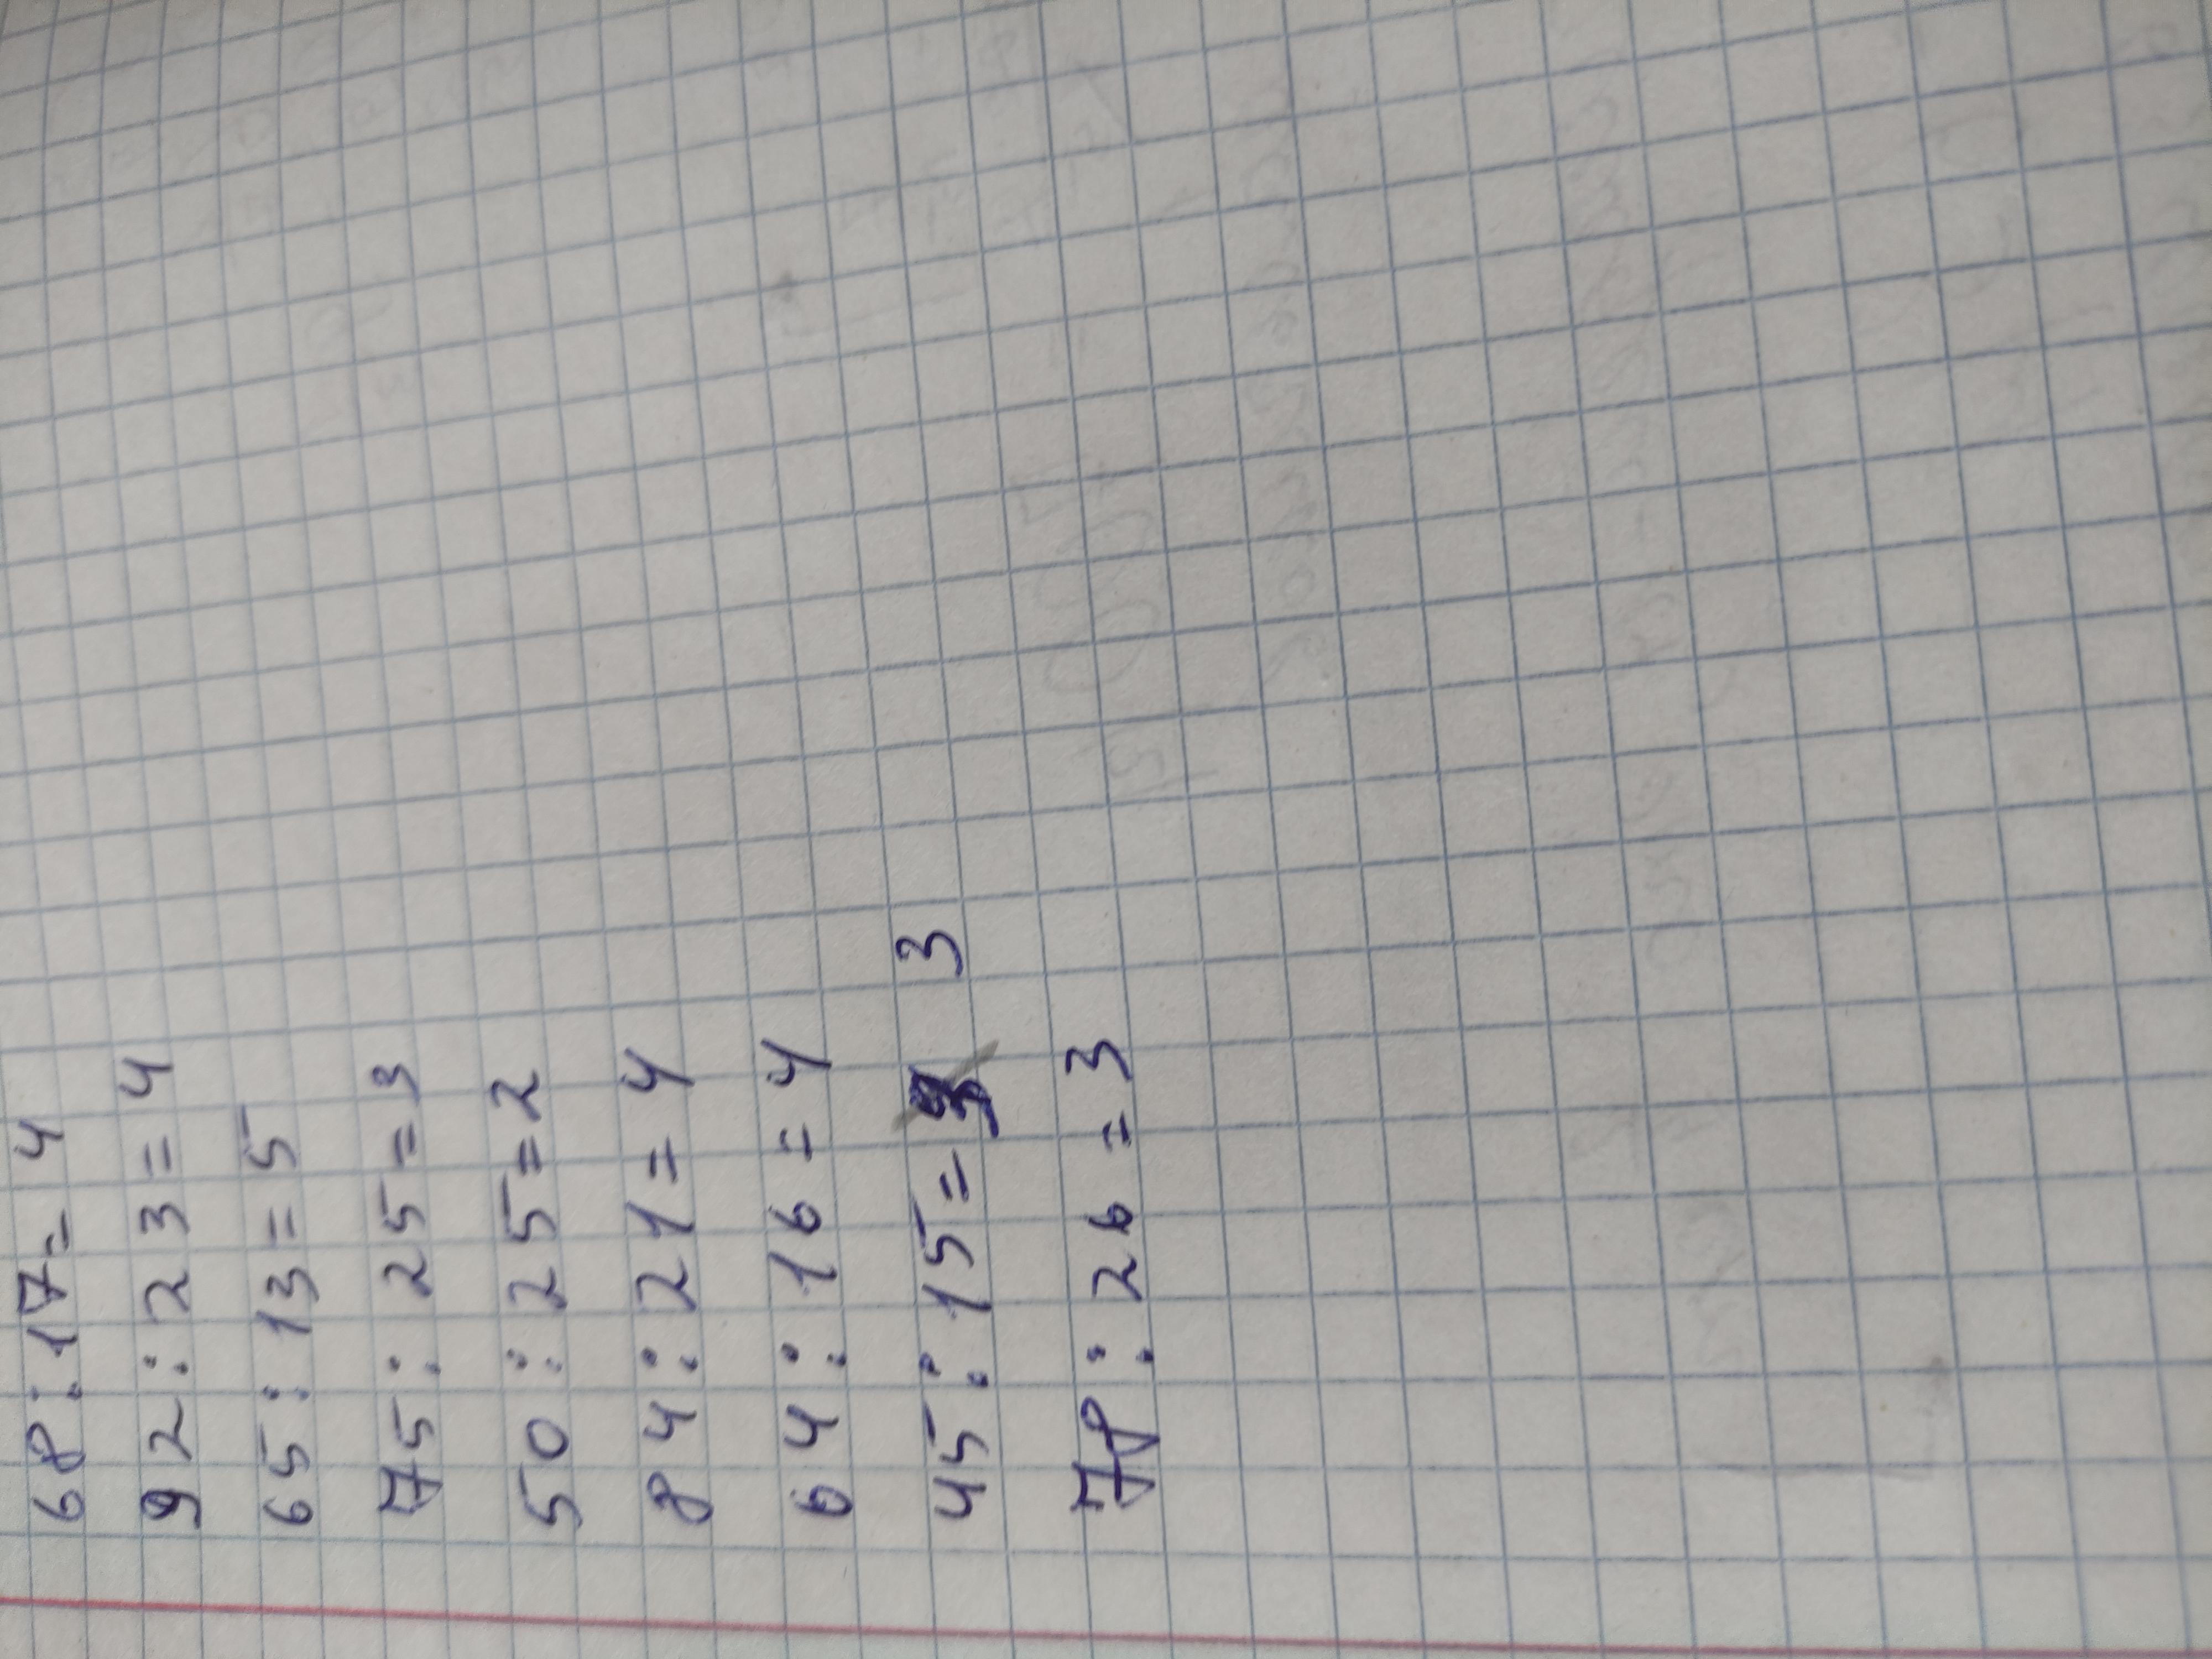 68:17=4
92:23=4
65:13=5
75:25=3
50:25=2
84:21=4
64:16=4
45:15= 3
78:26=3